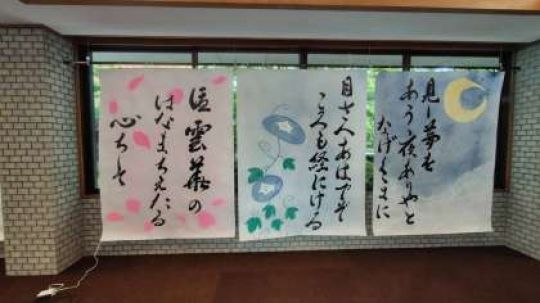 見し夢を
あふ夜ありやと
なげくまに
目さへあはでぞ
ころも経にける
優曇華の
はなまちえたる
心ちして